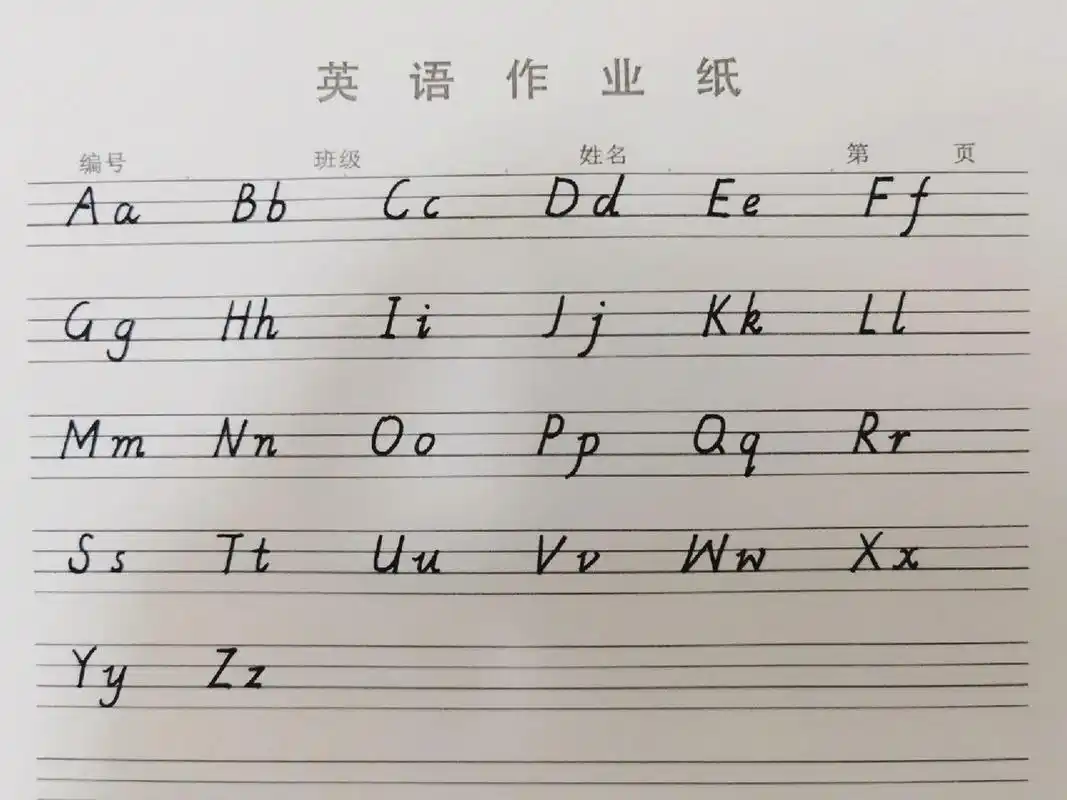 英语作业纸
编号 班级 姓名 第 页
Aa Bb Cc Dd Ee Ff
Gg Hh Ii Jj Kk Ll
Mm Nn Oo Pp Qq Rr
Ss Tt Uu Vv Ww Xx
Yy Zz